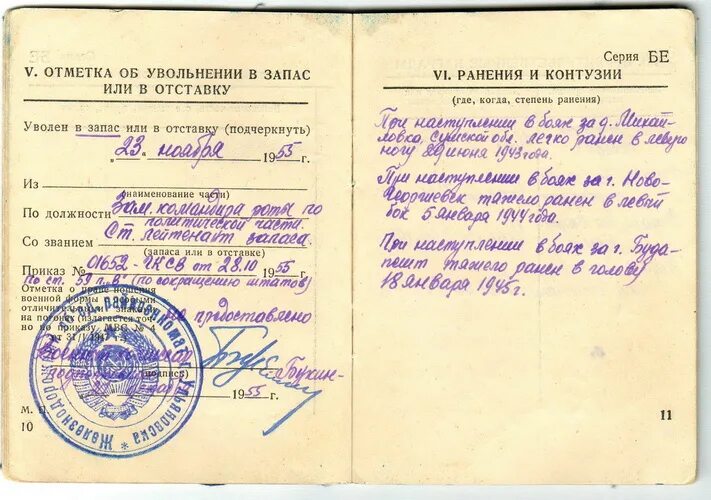 V. ОТМЕТКА ОБ УВОЛЬНЕНИИ В ЗАПАС
ИЛИ В ОТСТАВКУ
Уволен в запас или в отставку (подчеркнуть)
„23" ноября 1955 г.
Из
(наименование части)
По должности Зам. командира роты по
политической части.
Со званием Ст. лейтенант запаса.
(запаса или в отставке)
Приказ № 01652 - УКСВ от 28.10 1955 г.
По ст. 59 п. „В" (по сокращению штатов)
Отметка о праве ношения
военной формы с особыми
отличительными знаками
на погонах (излагается точ-
но по приказу МВС № 4
от 31/I 1947 г.) не предоставлено
Военный комиссар
подполковник
(подпись) Букин
1955 г.
М. П.
Железнодорожный райвоенкомат г. Ульяновска
10
Серия БЕ
VI. РАНЕНИЯ И КОНТУЗИИ
(где, когда, степень ранения)
При наступлении в боях за д. Михай-
ловка, Сумской обл. легко ранен в левую
ногу 20 июня 1943 года.
При наступлении в боях за г. Ново-
Георгиевск тяжело ранен в левый
бок 5 января 1944 года.
При наступлении в боях за г. Буда-
пешт тяжело ранен в голову
18 января 1945 г.
11